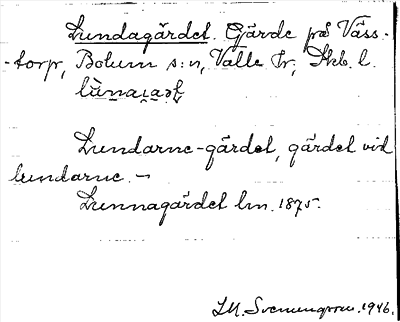 Lundagärdet. Gärde på Väss-
-torp, Bolum s:n, Valle hr, Skb. l.
Lundarne-gärdet, gärdet vid
lundarne. –
Lunnagärdet lm. 1875.
1946.